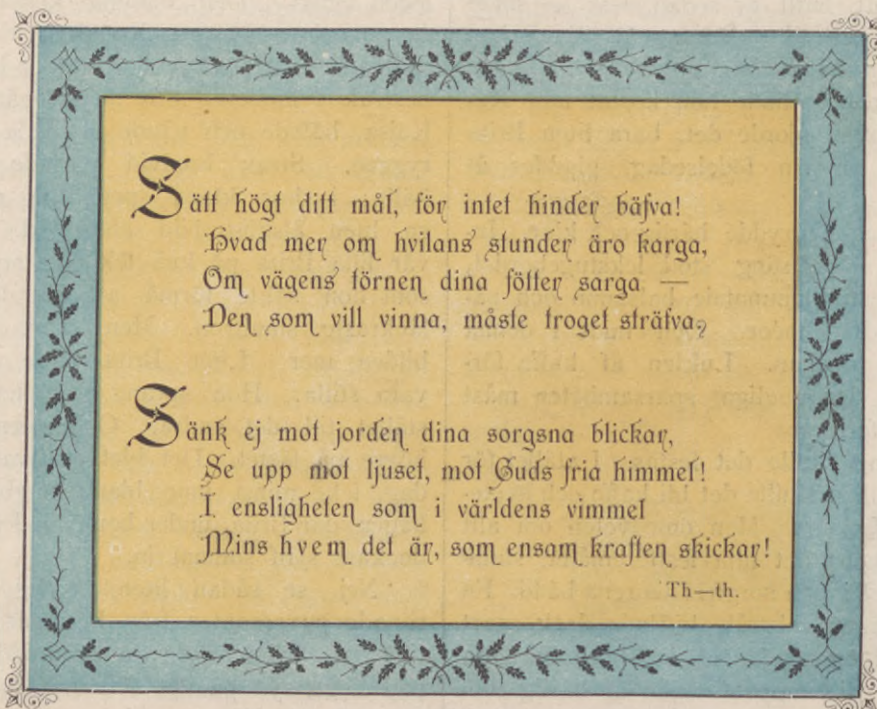 Sätt högt ditt mål, för intet hinder bäfva!
Hvad mer om hvilans stunder äro karga,
Om vägens törnen dina fötter sarga —
Den som vill vinna, måste troget sträfva,
Sänk ej mot jorden dina sorgsna blickar,
Se upp mot ljuset, mot Guds fria himmel!
I ensligheten som i världens vimmel
Mins hvem det är, som ensam kraften skickar!
Th—th.